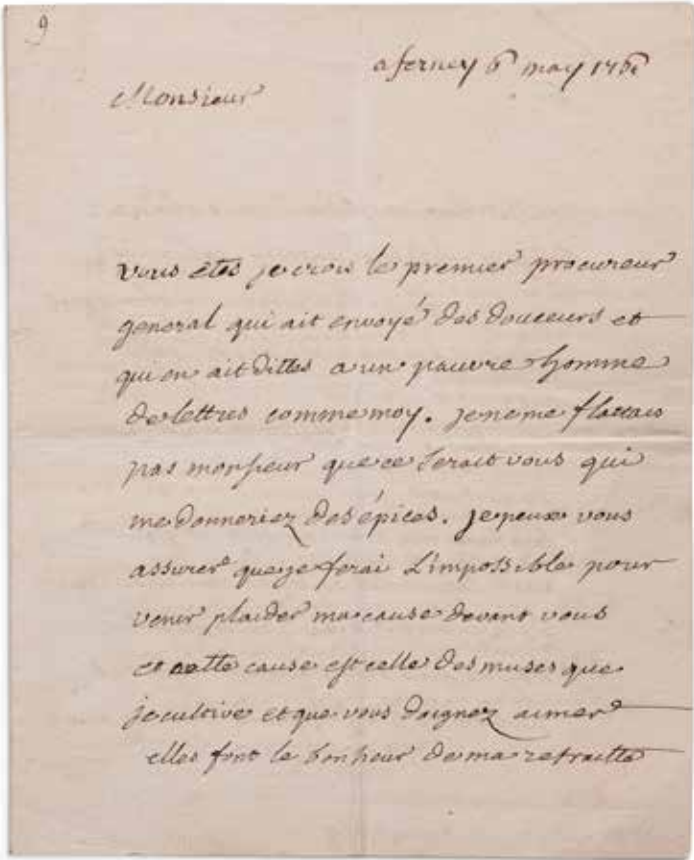 9
a ferney 6 may 176
Monsieur
vous etes je crois le premier procureur
general qui ait envoyé des douceurs et
qui en ait dittes a un pauvre homme
de lettres comme moy. je ne me flattais
pas monsieur que ce serait vous qui
me donneriez des épices. je peux vous
assurer que je ferai L'impossible pour
venir plaider ma cause devant vous
et cette cause est celle des muses que
je cultive et que vous daignez aimer
elles font le bonheur de ma retraitte